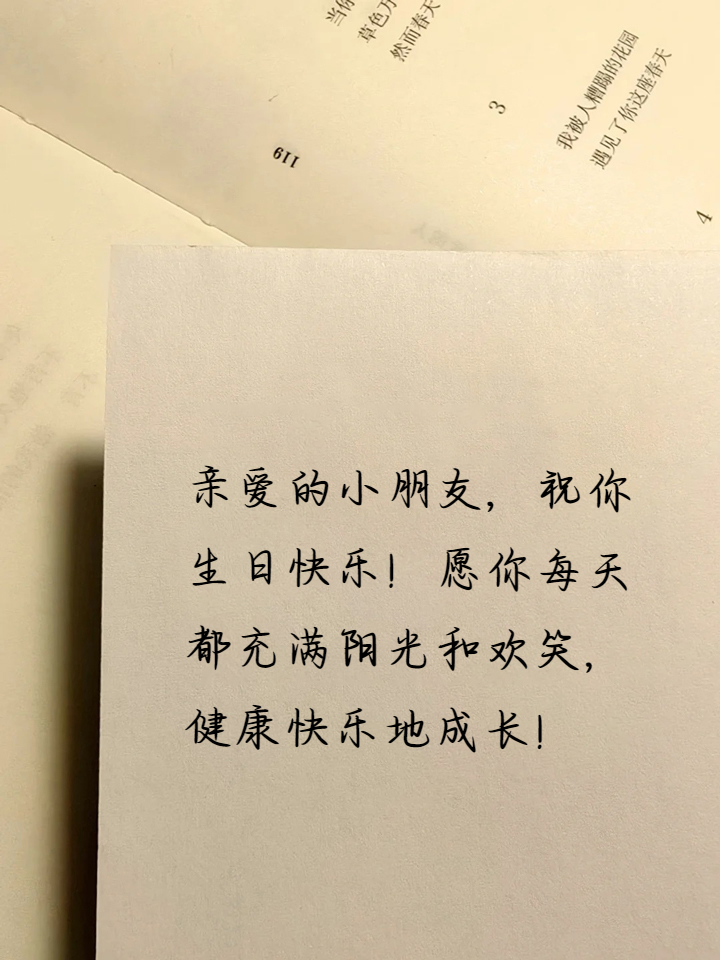 当你
草色万
然而春天
3
我被人糟蹋的花园
遇见了你这座春天
4
119
亲爱的小朋友，祝你
生日快乐！愿你每天
都充满阳光和欢笑，
健康快乐地成长！